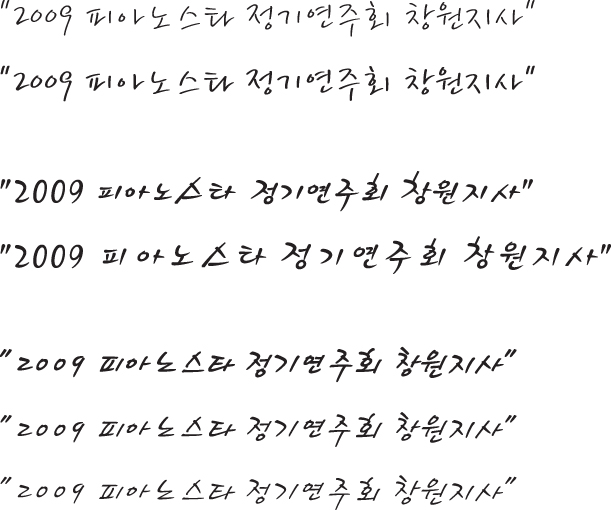 "2009 피아노스타 정기연주회 창원지사"
"2009 피아노스타 정기연주회 창원지사"
"2009 피아노스타 정기연주회 창원지사"
"2009 피아노스타 정기연주회 창원지사"
"2009 피아노스타 정기연주회 창원지사"
"2009 피아노스타 정기연주회 창원지사"
"2009 피아노스타 정기연주회 창원지사"